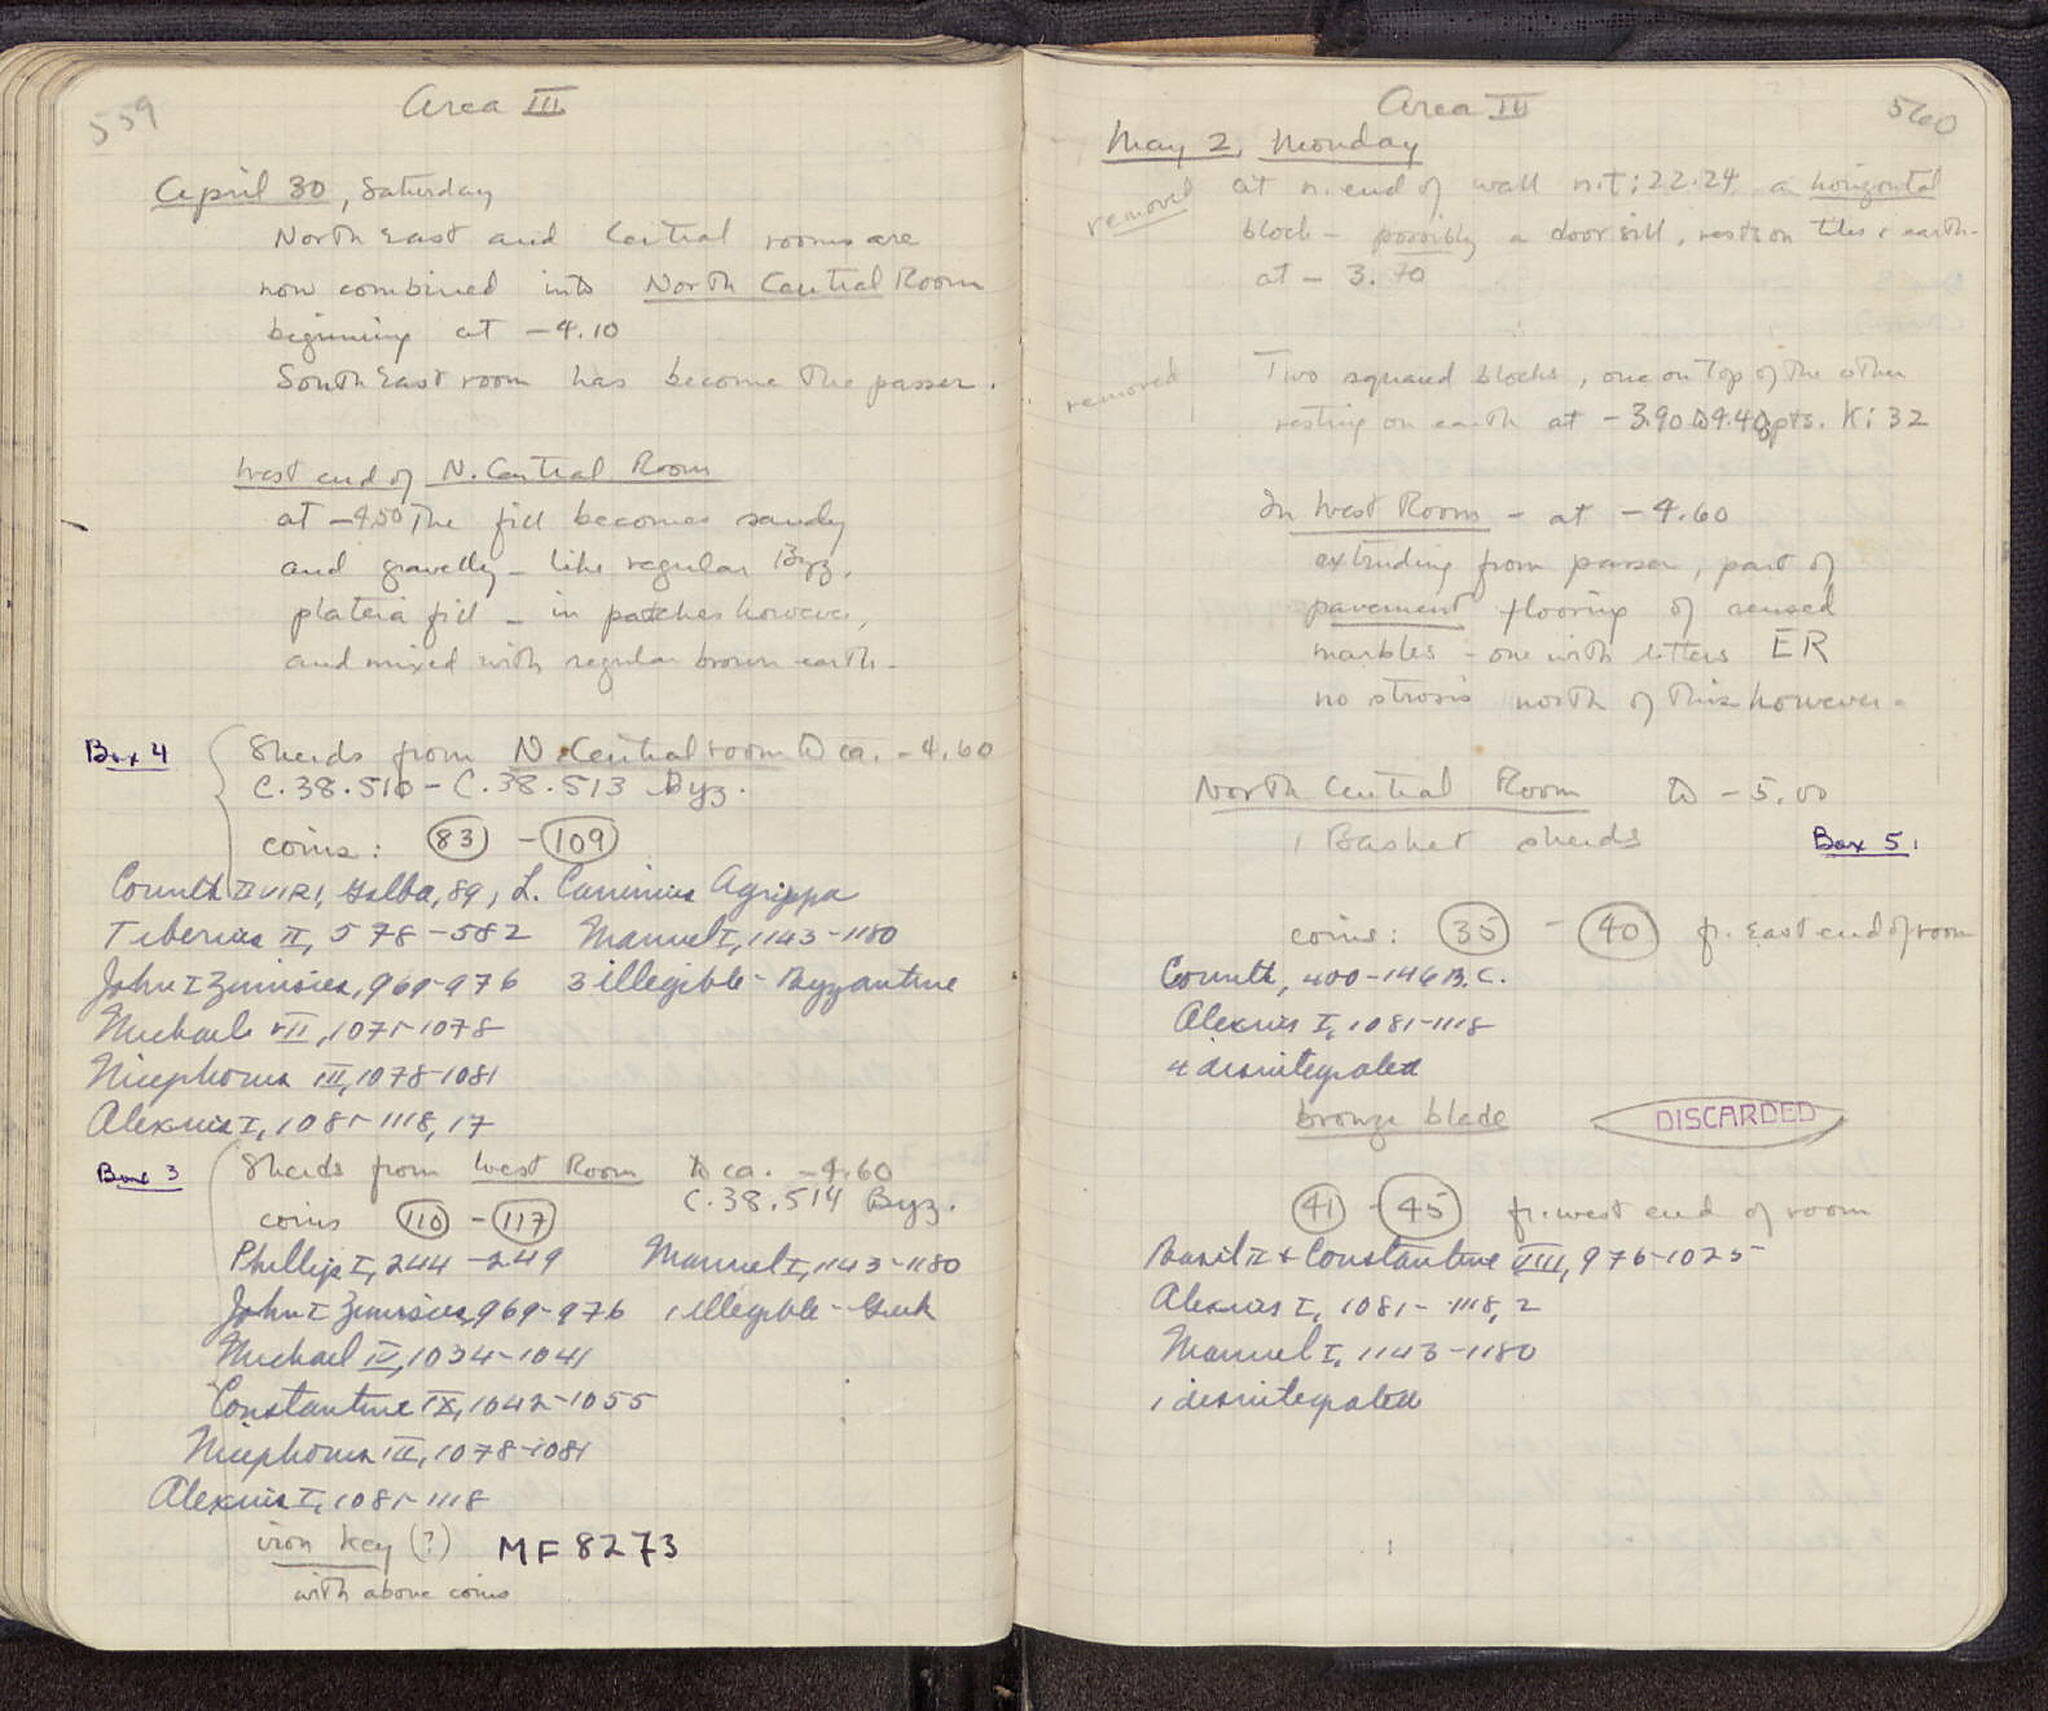 559
Area III
April 30, Saturday
North East and Central rooms are
now combined into North Central Room
beginning at -4.10
South East room has become the passer.
West end of N. Central Room
at -4.50 The fill becomes sandy
and gravelly - like regular Byz.
plateia fill - in patches however,
and mixed with regular brown earth -
Box 4
Sherds from N. Central room to ca. -4.60
C.38.510 - C.38.513 Byz.
coins: 83 - 109
Corinth IIVIRI, Galba, 89, L. Caninius Agrippa
Tiberius II, 578-582 Manuel I, 1143-1180
John I Zimisces, 969-976 3 illegible - Byzantine
Michael VII, 1071-1078
Nicephorus III, 1078-1081
Alexius I, 1081-1118, 17
Box 3
Sherds from West Room to ca. -4.60
C.38.514 Byz.
coins 110 - 117
Phillip I, 244-249 Manuel I, 1143-1180
John I Zimisces, 969-976 1 illegible - Greek
Michael IV, 1034-1041
Constantine IX, 1042-1055
Nicephorus III, 1078-1081
Alexius I, 1081-1118
iron key (?) MF 8273
with above coins
560
Area III
May 2, Monday
removed
at n. end of wall n.t: 22.24 a horizontal
block - possibly a door sill, rests on tiles & earth -
at - 3.70
removed
Two squared blocks, one on top of the other
resting on earth at -3.90 to 4.40 pts. K: 32
In West Room - at -4.60
extruding from passer, part of
pavement flooring of reused
marbles - one with letters ER
no strosis north of this however.
North Central Room to -5.00
1 Basket sherds
Box 5.
coins: 35 - 40 fr. East end of room
Corinth, 400-146 B.C.
Alexius I, 1081-1118
4 disintegrated
bronze blade DISCARDED
41 - 45 fr. west end of room
Basil II + Constantine VIII, 976-1025
Alexius I, 1081-1118, 2
Manuel I, 1143-1180
1 disintegrated